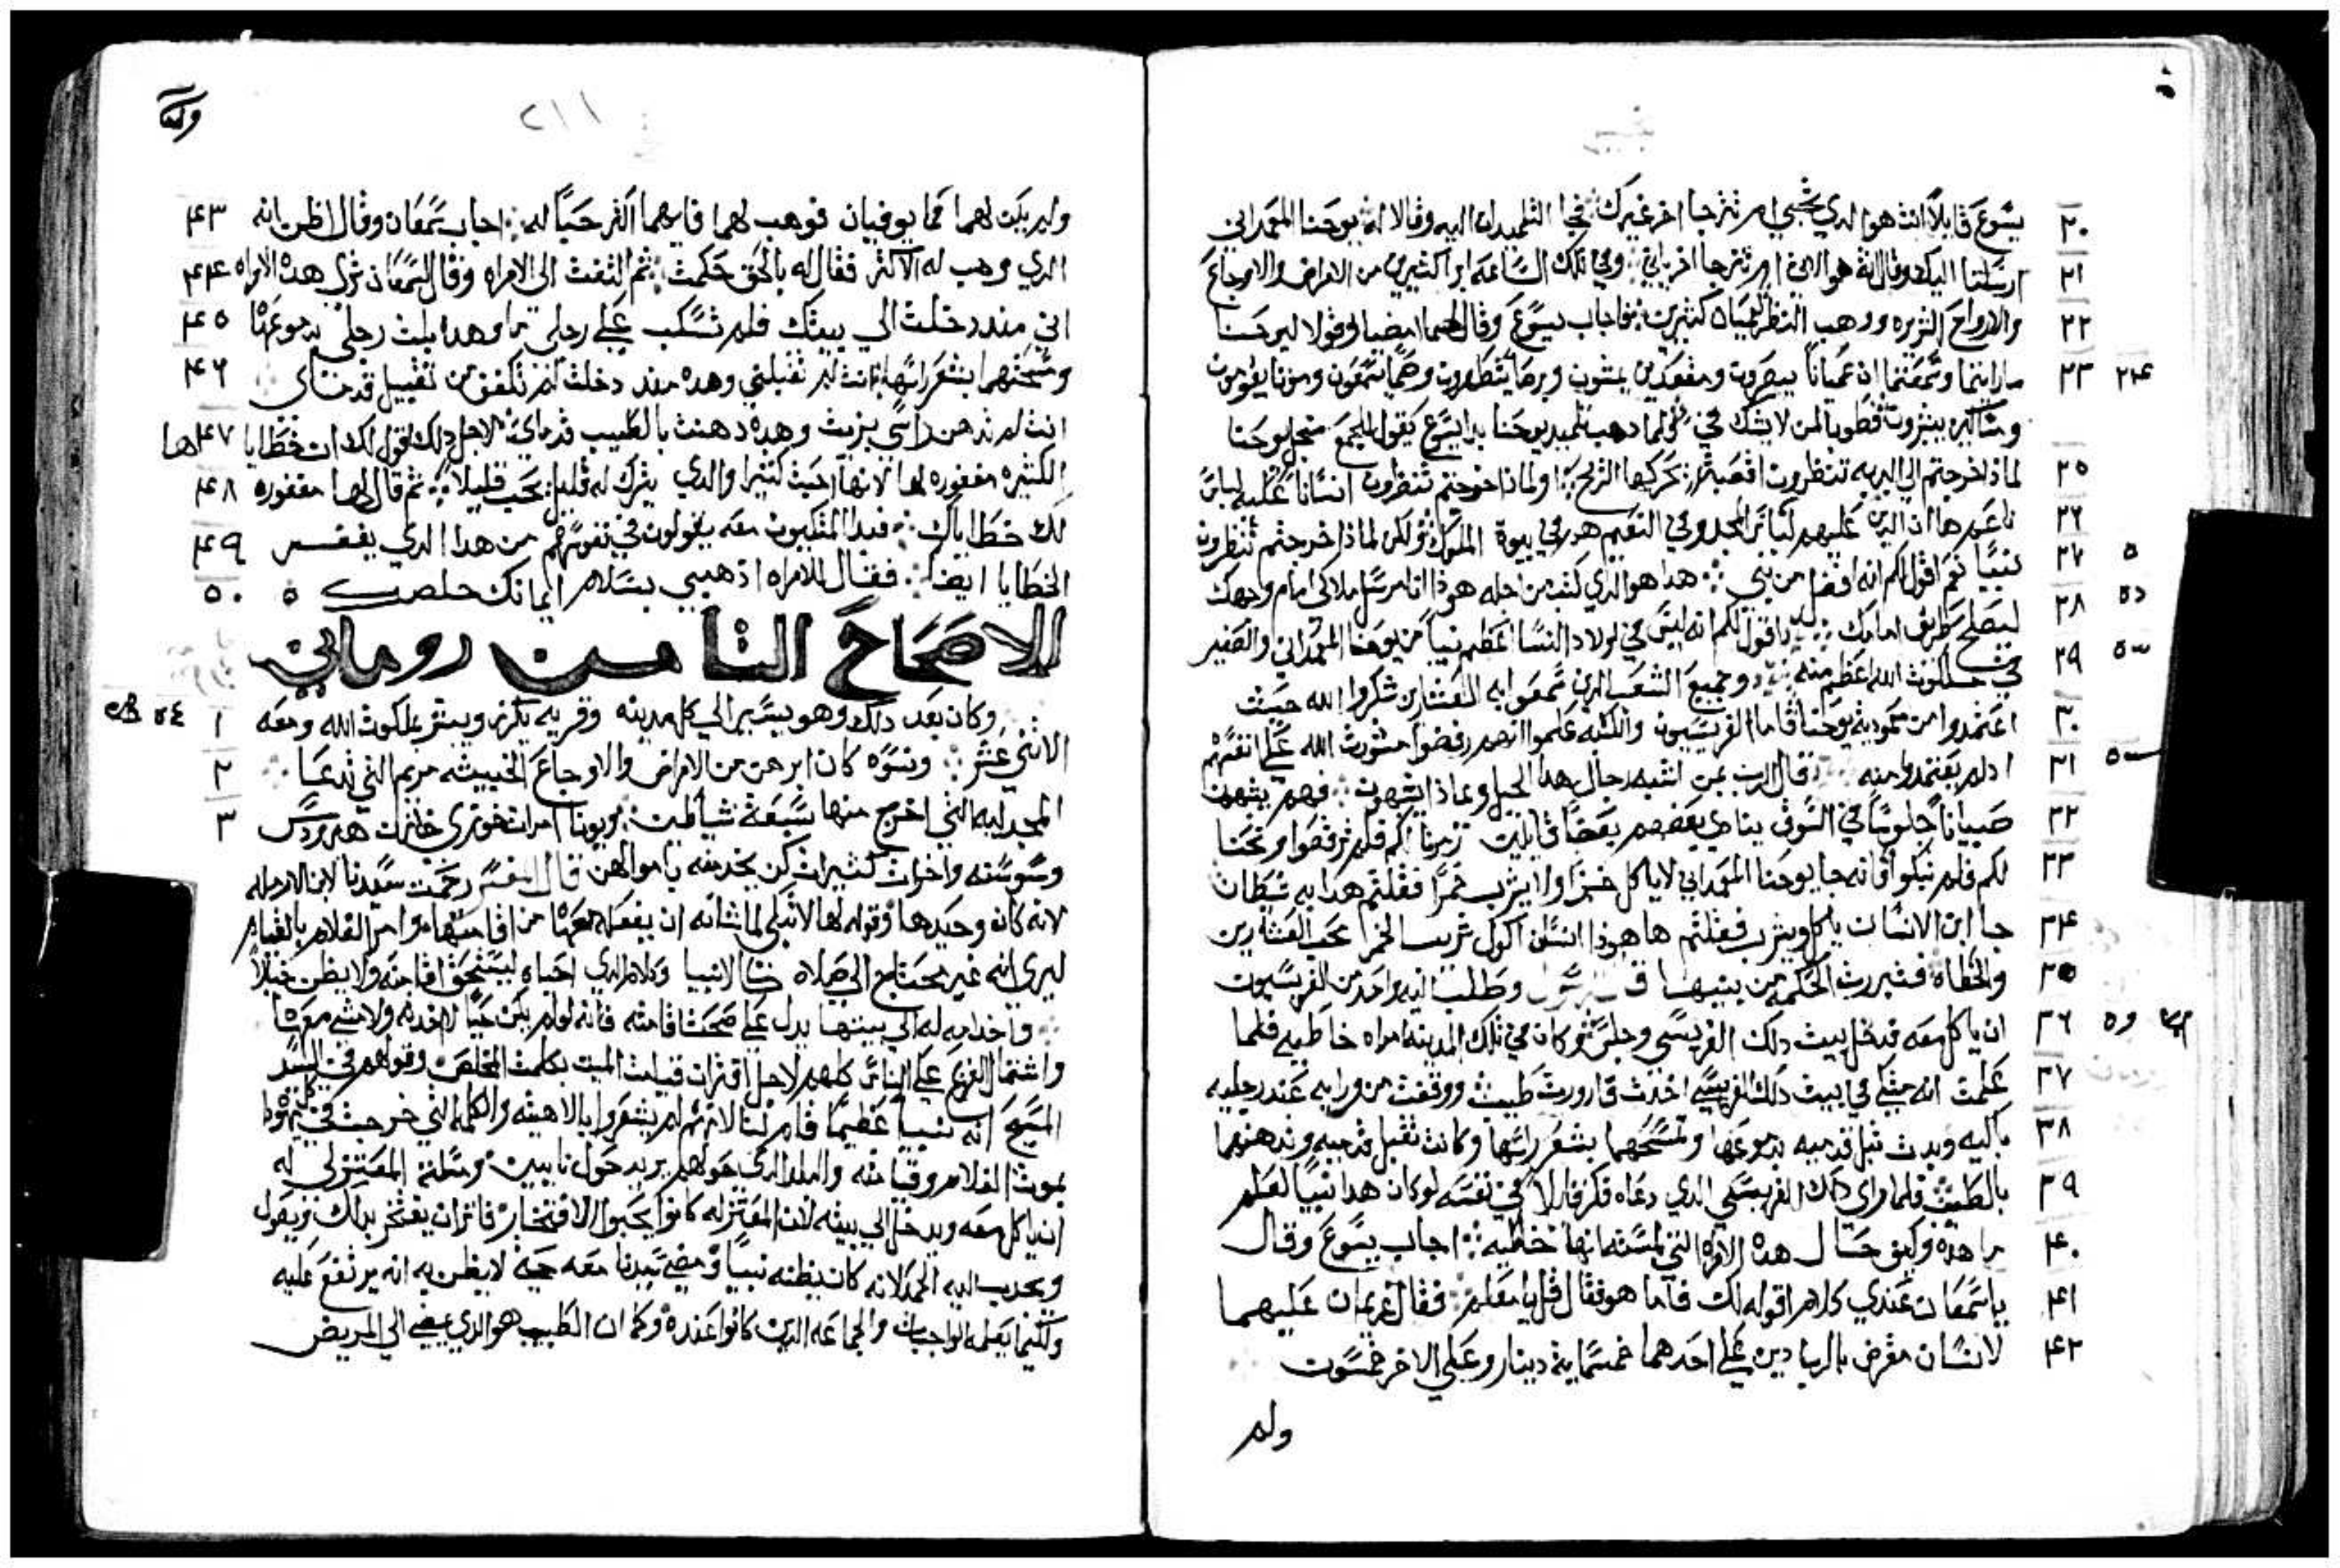 يسوع قايلاً انت هو الدي تجي ام نترجا اخر غيرك فجا التلميدان اليه وقالا له يوحنا المعمداني ٢٠
ارسلنا اليك وقال انت هو الاتي ام نترجا اخر ياتي وفي تلك الساعه ابرا كثيرين من الامراض والاوجاع ٢١
والارواح الشريره ووهب النظر لعميان كثيرين فاجاب يسوع وقال لهما امضيا وقولا ليوحنا ٢٢
ما رايتما وسمعتما ان عمياناً يبصرون ومقعدين يمشون وبرصا يتطهرون وصماً يسمعون وموتا يقومون ٢٣
ومساكين يبشرون فطوبا لمن لا يشك في ولما دهب تلميدي يوحنا بدا يسوع يقول للجمع من اجل يوحنا
لماذا خرجتم الي البريه تنظرون اقصبة تحركها الريح او لماذا خرجتم تنظرون انساناً عليه لباس ٢٥
ناعم ها ان الدين عليهم لباس المجد وفي النعيم هم في بيوة الملوك لكن لماذا خرجتم تنظرون ٢٦
نبياً نعم اقول لكم انه افضل من نبي هدا هو الدي كتب من اجله هوذا انا مرسل ملاكي امام وجهك ٢٧
ليصلح طريقك امامك اقول لكم انه ليس في اولاد النسا اعظم نبياً من يوحنا المعمداني والصغير ٢٨
في ملكوت الله اعظم منه وجميع الشعب الدين سمعوا به والعشارين شكروا الله حيث ٢٩
اعتمدوا من معمودية يوحنا فاما الفريسيون والكتبه علموا انهم رفضوا مشورت الله على انفسهم ٣٠
اد لم يعتمدوا منه قال الرب بمن اشبه رجال هدا الجيل وبماذا يشبهون فهم يشبهون ٣١
صبياناً جلوساً في السوق ينادي بعضهم بعضاً قايلين زمرنا لكم فلم ترقصوا ونحنا ٣٢
لكم فلم تبكوا فانه جا يوحنا المعمداني لا ياكل خبزا ولا يشرب خمرًا فقلتم هدا به شيطان ٣٣
جا ابن الانسان ياكل ويشرب فقلتم ها هوذا انسان اكول شريب الخمرا محب العشارين ٣٤
والخطاه فتبررت الحكمه من بنيها وطلب اليه واحد من الفريسيون ٣٥
ان ياكل معه فدخل بيت دلك الفريسي وجلس وكان في تلك المدينه امراه خاطيه فلما ٣٦
علمت انه متكي في بيت دلك الفريسي اخدت قارورت طيب ووقفت من ورايه عند رجليه ٣٧
باكيه وبدت تبل قدميه بدموعها وتمسحهما بشعر راسها وكانت تقبل قدميه وتدهنهما ٣٨
بالطيب فلما راى دلك الفريسي الدي دعاه فكر قايلا في نفسه لو كان هدا نبياً لعلم ٣٩
ما هده وكيف حال هده الامراه التي لمسته انها خاطيه اجاب يسوع وقال ٤٠
يا سمعان عندي كلام اقوله لك فاما هو فقال قل يا معلم فقال غريمان عليهما ٤١
لانسان مقرض بالربا دين على احدهما خمسماية دينار وعلي الاخر خمسون ٤٢
ولم
٢١١
ولم يكن لهما مما يوفيان فوهب لهما فايهما اكثر حباً له اجاب سمعان وقال اظن انه ٤٣
الدي وهب له الاكثر فقال له بالحق حكمت ثم التفت الى الامراه وقال لسمعان ترى هده الامراه ٤٤
اني مند دخلت الي بيتك فلم تسكب على رجلي ما وهدا بلت رجلي بدموعها ٤٥
ومسحتهما بشعر راسها انت لم تقبلني وهده مند دخلت لم تكفف من تقبيل قدماي ٤٦
انت لم تدهن راسي بزيت وهده دهنت بالطيب قدماي لاجل دلك اقول لك ان خطاياها ٤٧
الكثيره مغفوره لها لانها احبت كثيرا والدي يترك له قليل يحب قليلا ثم قال لها مغفوره ٤٨
لك خطاياك فبدا المتكيون معه يقولون في نفوسهم من هدا الدي يغفر ٤٩
الخطايا ايضاً فقال للامراه ادهبي بسلام ايمانك خلصك ٥٠
الاصحاح الثامن روماني
وكان بعد دلك وهو يسير الي كل مدينه وقريه يكرز ويبشر بملكوت الله ومعه ١ ٥٤
الاثني عشر ونسوه كان ابرهن من الامراض والاوجاع الخبيثه مريم التي تدعا ٢
المجدليه التي اخرج منها سبعة شياطين ويونا امرات خوزى خازن هيرودس ٣
وسوسنه واخرات كثيرات كن يخدمنه باموالهن قال المفسر رحمت سيدنا لابن الارمله
لانه كان وحيدها وقوله لها لا تبكي لما شانه ان يفعله معها من اقامتها وامر الغلام بالقيام
ليرى انه غير محتاج الي صلاه الانبيا وكلام الدي احياه ليتحقق اقامته ولا يظن خيالاً
واخدامه له الي بيتها يدل على صحت اقامته فانه لو لم يكن حياً لاخدته ولا مشي معها
واشتمال الفزع على الناس كلهم لاجل اقتران قيامت الميت بكلمت المخلص وقولهم في السيد
المسيح انه نبياً عظيماً قام لنا لانهم لم يشعروا بالاهيته والكلمه التي خرجت في كل يهودا
بموت الغلام وقيامته والبلد الدي حولهم يريد حول نابين ومسلة المعتزلي له
ان ياكل معه ويدخل الي بيته لان المعتزله كانوا يحبوا الافتخار فاتران يفتخر بدلك ويقول
ويجدب اليه الحمد لانه كان يظنه نبياً ومضي سيدنا معه حيث لا يظن به انه يرتفع عليه
ولكيما يعلمه الواجبات والجماعه الدين كانوا عنده وكما ان الطبيب هو الدي يمضي الي المريض